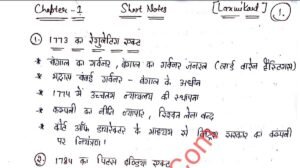 Chapter-1 Short Notes [Laxmikant] 1.
1. 1773 का रेगुलेटिंग एक्ट
* बंगाल का गवर्नर - बंगाल का गवर्नर जनरल (लार्ड वारेन हेस्टिंग्स)
* मद्रास बंबई गवर्नर - बंगाल के अधीन
* 1774 में उच्चतम न्यायालय की स्थापना
* कम्पनी का निजि व्यापार, रिश्वत लेना बन्द
* कोर्ट ऑफ डायरेक्टर के माध्यम से ब्रिटिश सरकार का कम्पनी
पर नियंत्रण।
2. 1784 का पिट्स इंडिया एक्ट
.com